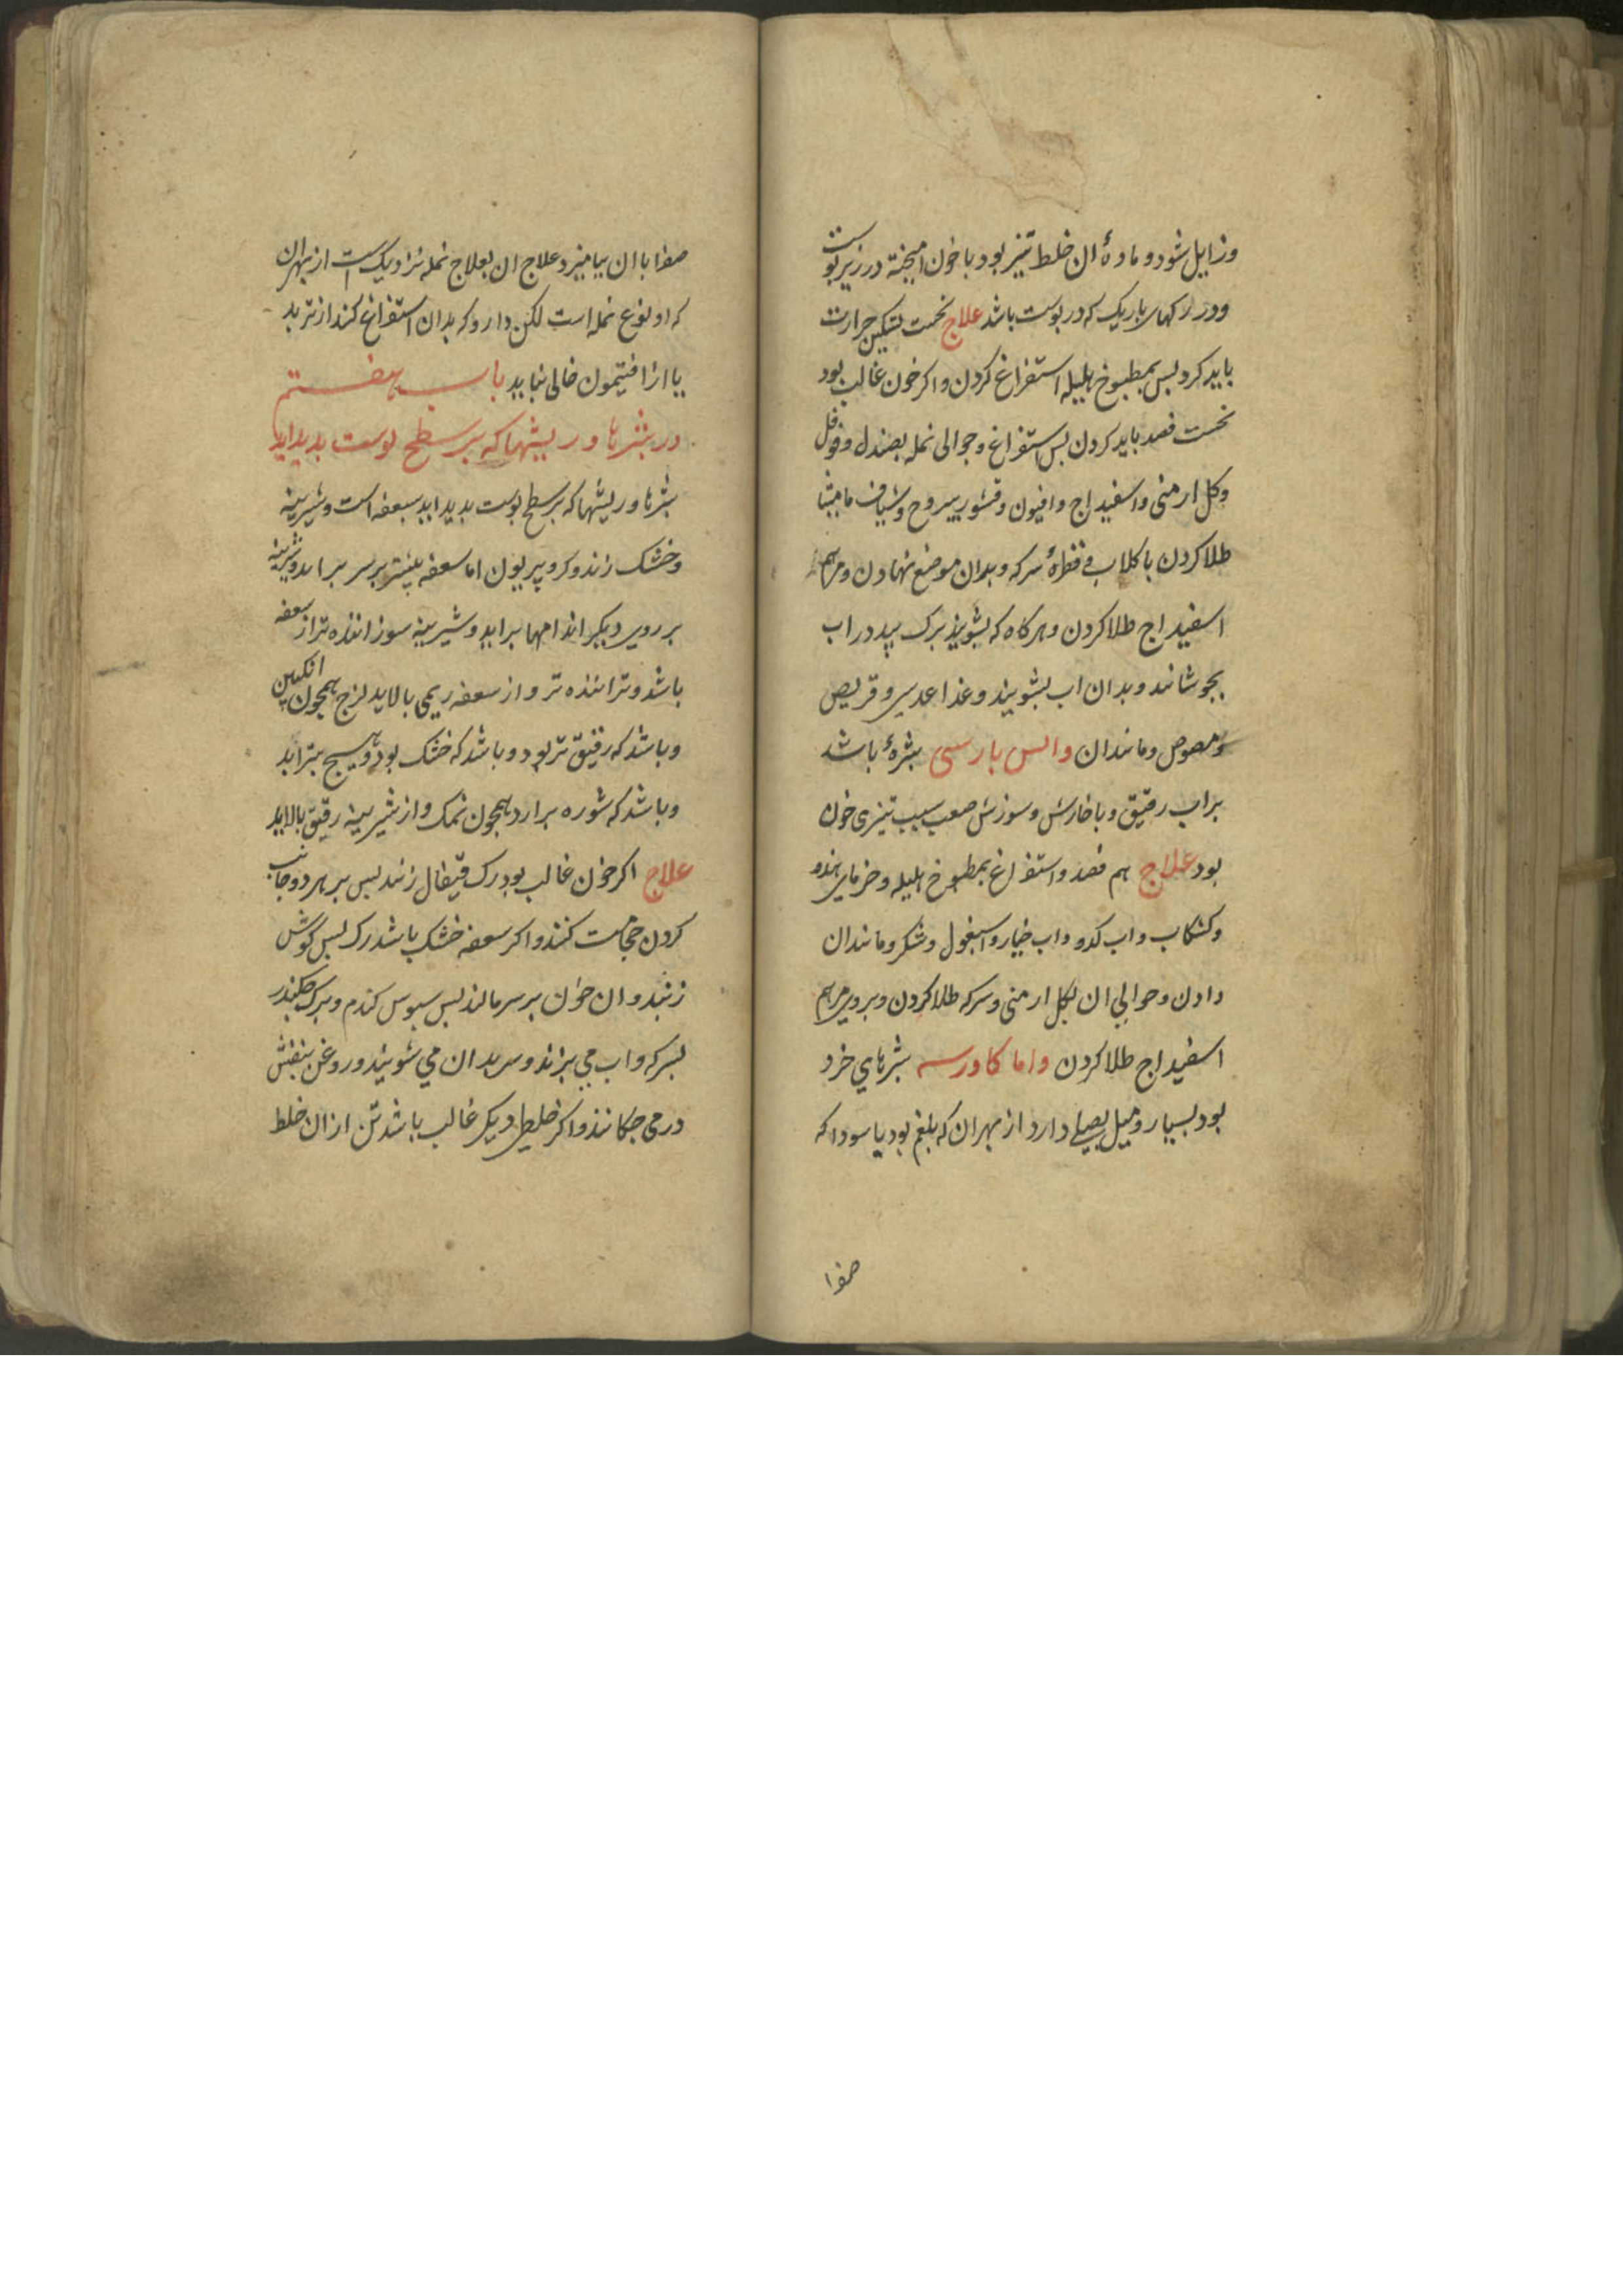 وزایل شود و مادۀ ان خلط تیز بود با خون امیخته در زیر پوست
و در رکهای باریک که در پوست باشد علاج نخست تسکین حرارت
باید کرد بس بمطبوخ هلیله استفراغ کردن و اکر خون غالب بود
نخست فصد باید کردن بس استفراغ و حوالی نمله بصندل و فوفل
و کل ارمنی و اسفیداج و افیون و قشور یبروح و شیاف مامیثا
طلا کردن با کلاب و قطرۀ سرکه و بدان موضع نهادن و مرهم
اسفیداج طلا کردن و هرکاه که بشویند برک بید در اب
بجوشانند و بدان اب بشویند و غذا عدسی و قریص
و مصوص و مانند ان واتس بارسی بثرۀ باشد
براب رقیق و با خارش و سوزش صعب سبب تیزی خون
بود علاج هم فصد و استفراغ بمطبوخ هلیله و خرمای هندو
و کشکاب و اب کدو و اب خیار و اسبغول و شکر و مانند ان
دادن و حوالی ان بکل ارمنی و سرکه طلا کردن و بروی مرهم
اسفیداج طلا کردن واما کاورسه بثرهای خرد
بود بسیار و میل بصلبی دارد از بهر ان که بلغم بود یا سودا که
صفرا
صفرا با ان بیامیزد و علاج ان بعلاج نمله نزدیک است از بهر ان
که او نوع نمله است لکن دارو که بدان استفراغ کنند از تربد
یا از افتیمون خالی نباید باب هفتم
در بثرها و ریشها که بر سطح بوست بدید اید
بثرها و ریشها که بر سطح بوست بدید اید سعفه است و شیرینه
و خشک زند و کروپیریون اما سعفه بیشتر بر سر براید و شیرینه
بر روی و دیکر اندامها براید و شیرینه سوزاننده تر از سعفه
باشد و تراننده تر و از سعفه ریمی بالاید لزج همچون انکبین
و باشد که رقیق تر بود و باشد که خشک بود و هیج نتراید
و باشد که شوره برارد همچون نمک و از شیرینه رقیق بالاید
علاج اکر خون غالب بود رک قیفال زنند بس بر هر دو جانب
کردن حجامت کنند و اکر سعفه خشک باشد رک بس کوش
زنند و ان خون بر سر مالند بس سبوس کندم و برک چکندر
بسرکه و اب می بزند و سر بدان می شویند و روغن بنفش
در می جکانند و اکر خلطی دیکر غالب باشد تن از ان خلط